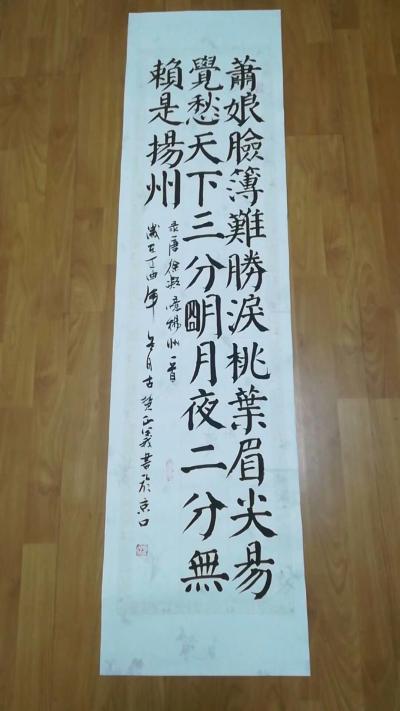 蕭娘臉簿難勝淚桃葉眉尖易
覺愁天下三分朙月夜二分無
賴是揚州
录唐徐凝憶揚州一首
歲在丁酉年 月古 正義書於京口